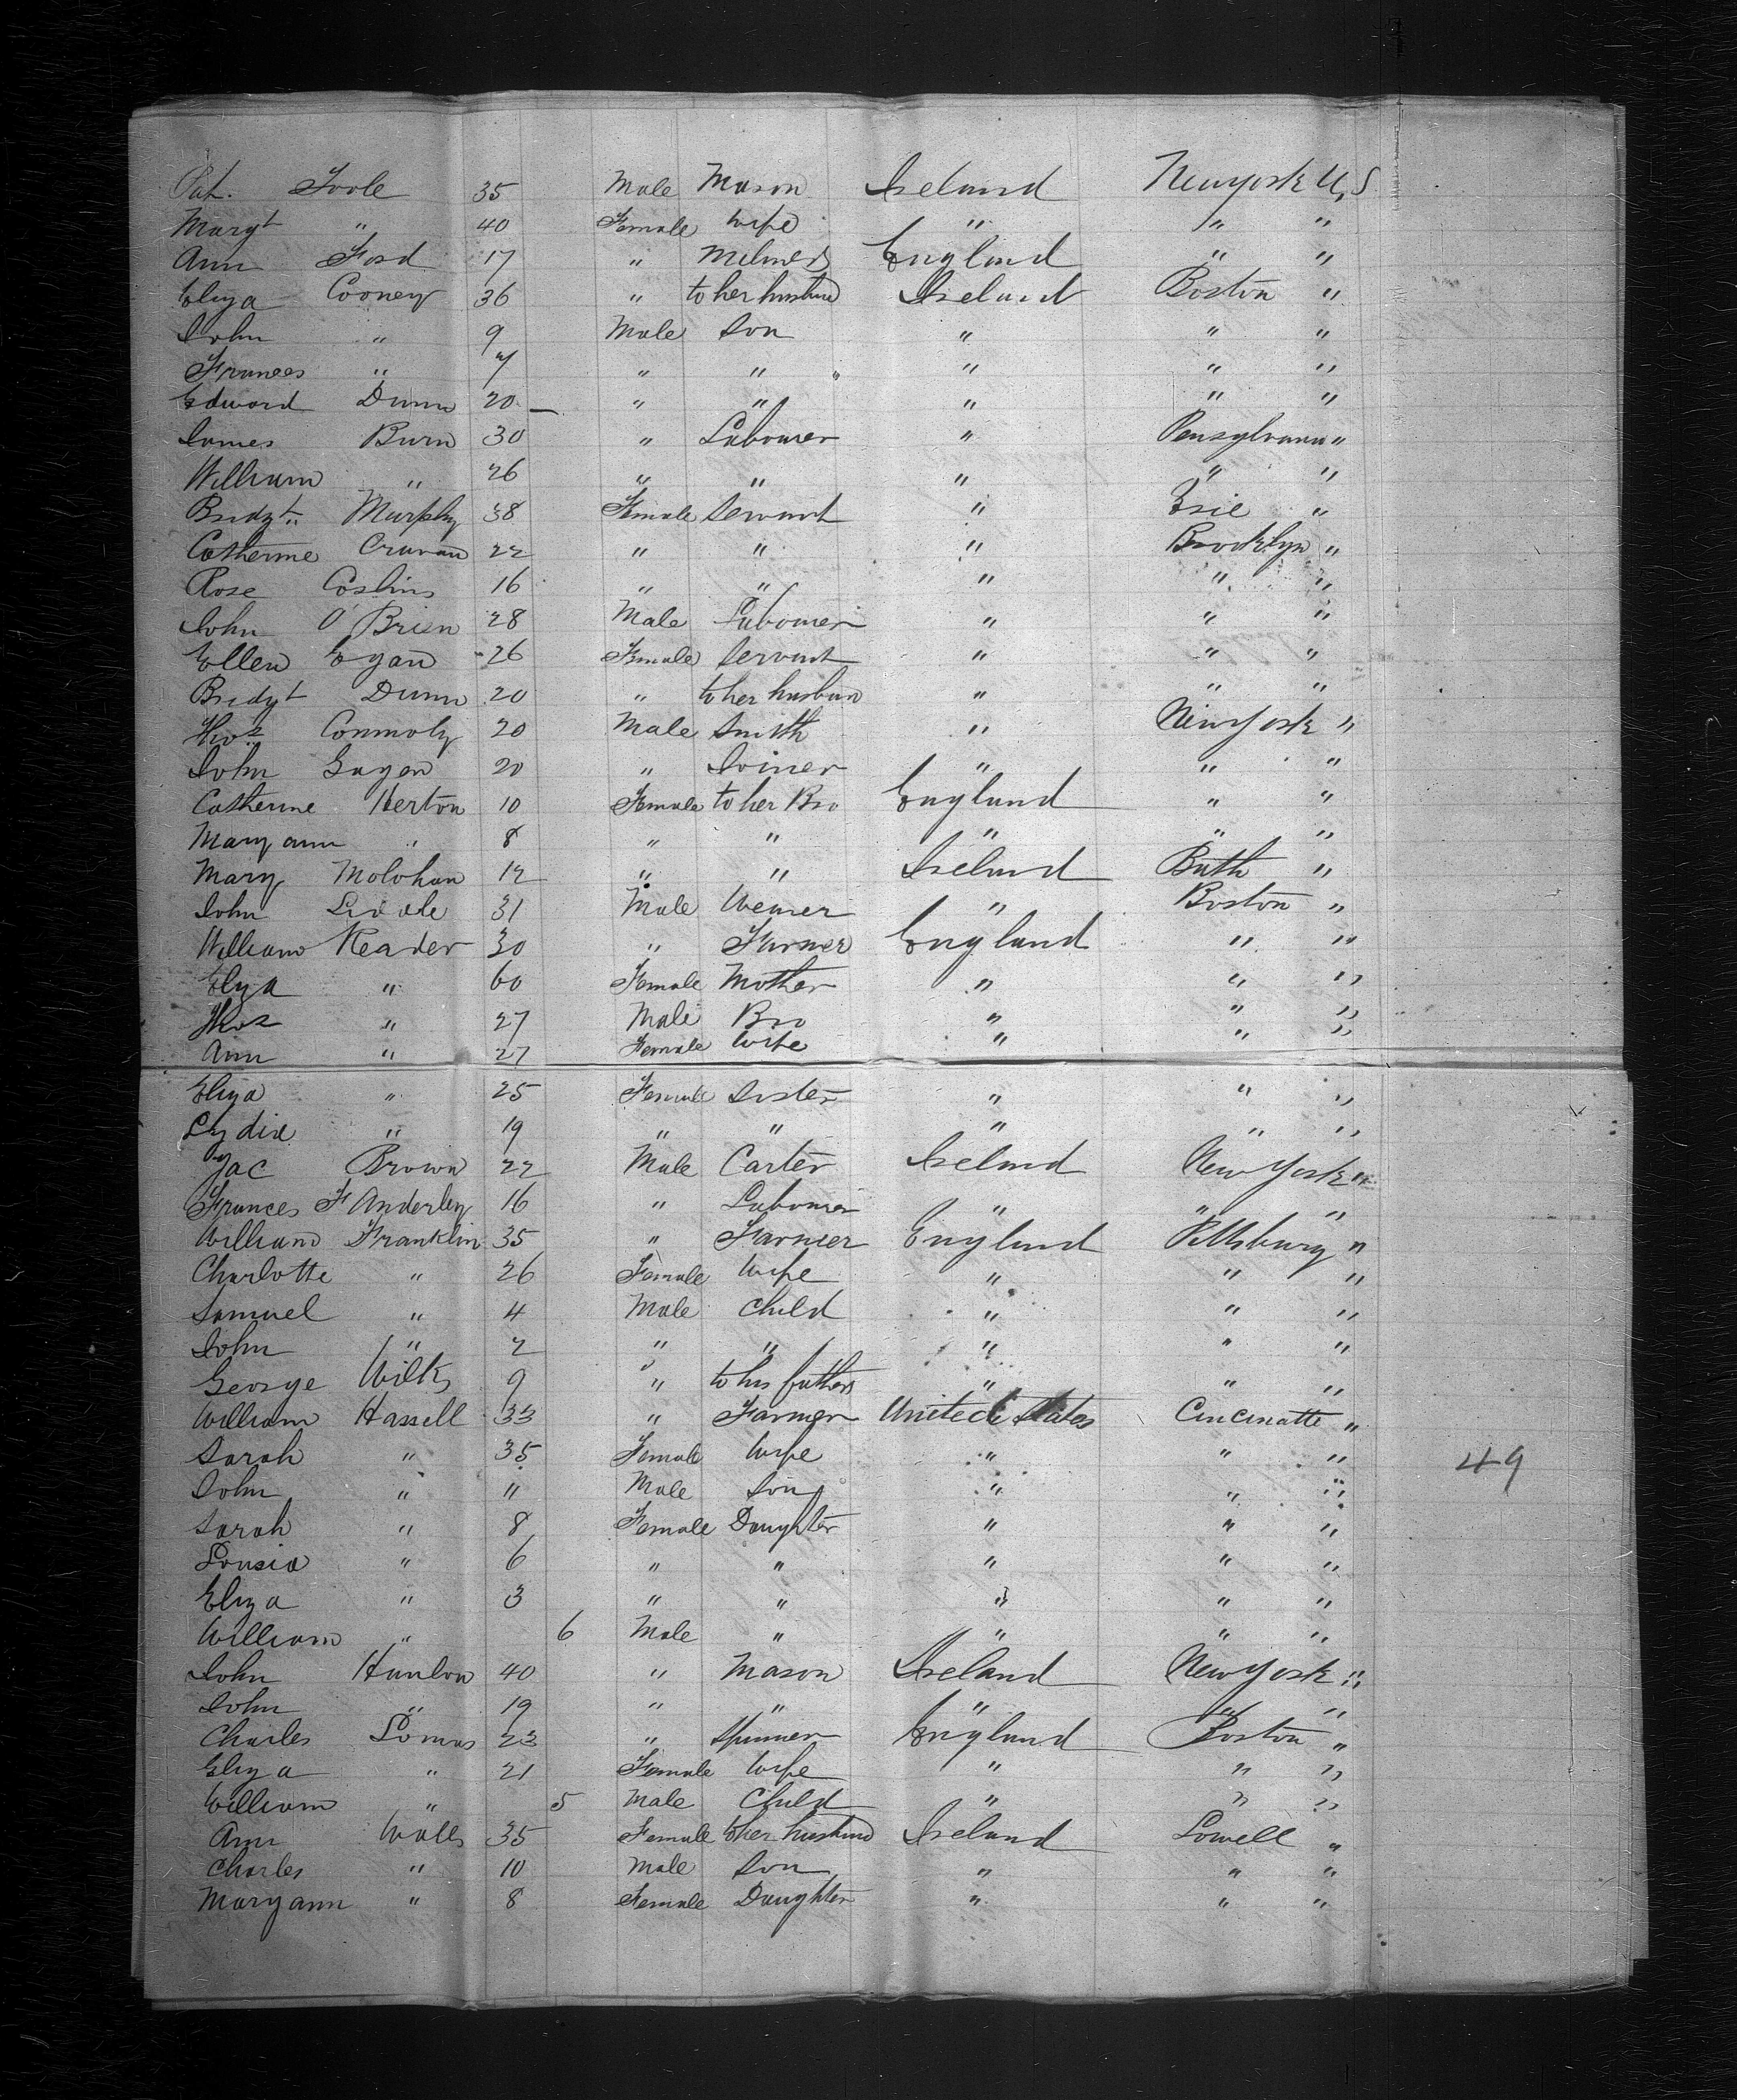 Pat. Toole 35 Male Mason Ireland New York U,S
Margt " 40 Female wife " " "
Ann Ford 17 " Milner England " "
Eliza Cooney 36 " to her husband Ireland Boston "
John " 9 Male Son " " "
Frances " 7 " " " " "
Edward Dunn 20 — " " " " "
James Burn 30 " Labourer " Pensylvania "
William " 26 " " " " "
Bridgt " Murphy 38 Female Servant " Erie "
Catherine Cravan 22 " " " Brooklyn "
Rose Coslins 16 " " " " "
John O'Brien 28 Male Labourer " " "
Ellen Egan 26 Female Servant " " "
Bridgt Dunn 20 " to her husban " " "
Thos Connnoly 20 Male Smith " New York "
John Gagen 20 " Joiner " " "
Catherine Herton 10 Female to her Bro England " "
Mary ann " 8 " " " " "
Mary Molohan 12 " " Ireland Bath "
John Liddle 31 Male Weaver " Boston "
William Reader 30 " Farmer England " "
Eliza " 60 Female Mother " " "
Thos " 27 Male Bro " " "
Ann " 27 Female Wife " " "
Eliza " 25 Female Sister " " "
Lydia " 19 " " " " "
Jac Brown 22 Male Carter Ireland New York "
Frances F Anderley 16 " Labourer " " "
William Franklin 35 " Farmer England Pittsburg "
Charlotte " 26 Female Wife " " "
Samuel " 4 Male Child " " "
John " 2 " " " " "
George Wilks 9 " to his father " " "
William Hassell 33 " Farmer United States Cincinatte "
Sarah " 35 Female Wife " " " 49
John " 11 Male Son " " "
Sarah " 8 Female Daughter " " "
Lousia " 6 " " " " "
Eliza " 3 " " " " "
William " 6 Male " " " "
John Hanlon 40 " Mason Ireland New York "
John " 19 " " " " "
Charles Lomas 23 " Spinner England Boston "
Eliza " 21 Female Wife " " "
William " 5 Male Child " " "
Ann Walls 35 Female to her husband Ireland Lowell "
Charles " 10 Male Son " " "
Mary ann " 8 Female Daughter " " "